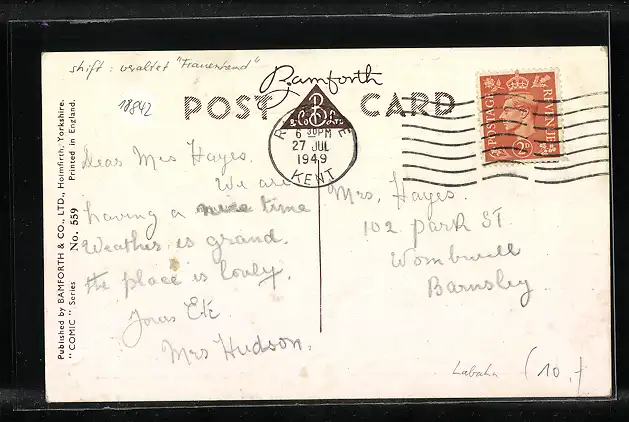 shift: veraltet "Frauenhemd"
18842
Bamforth
POST CARD
B
& Co Ltd
6 30PM
27 JLY
1949
KENT
POSTAGE
REVENUE
2D
Dear Mrs Hayes.
We are
having a nice time
Weather is grand.
the place is lovly.
Yours Etc
Mrs Hudson.
Mrs. Hayes.
102 Park ST
Wombwell
Barnsley.
Published by BAMFORTH & CO., LTD., Holmfirth, Yorkshire.
"COMIC" Series No. 559 Printed in England.
(10,-